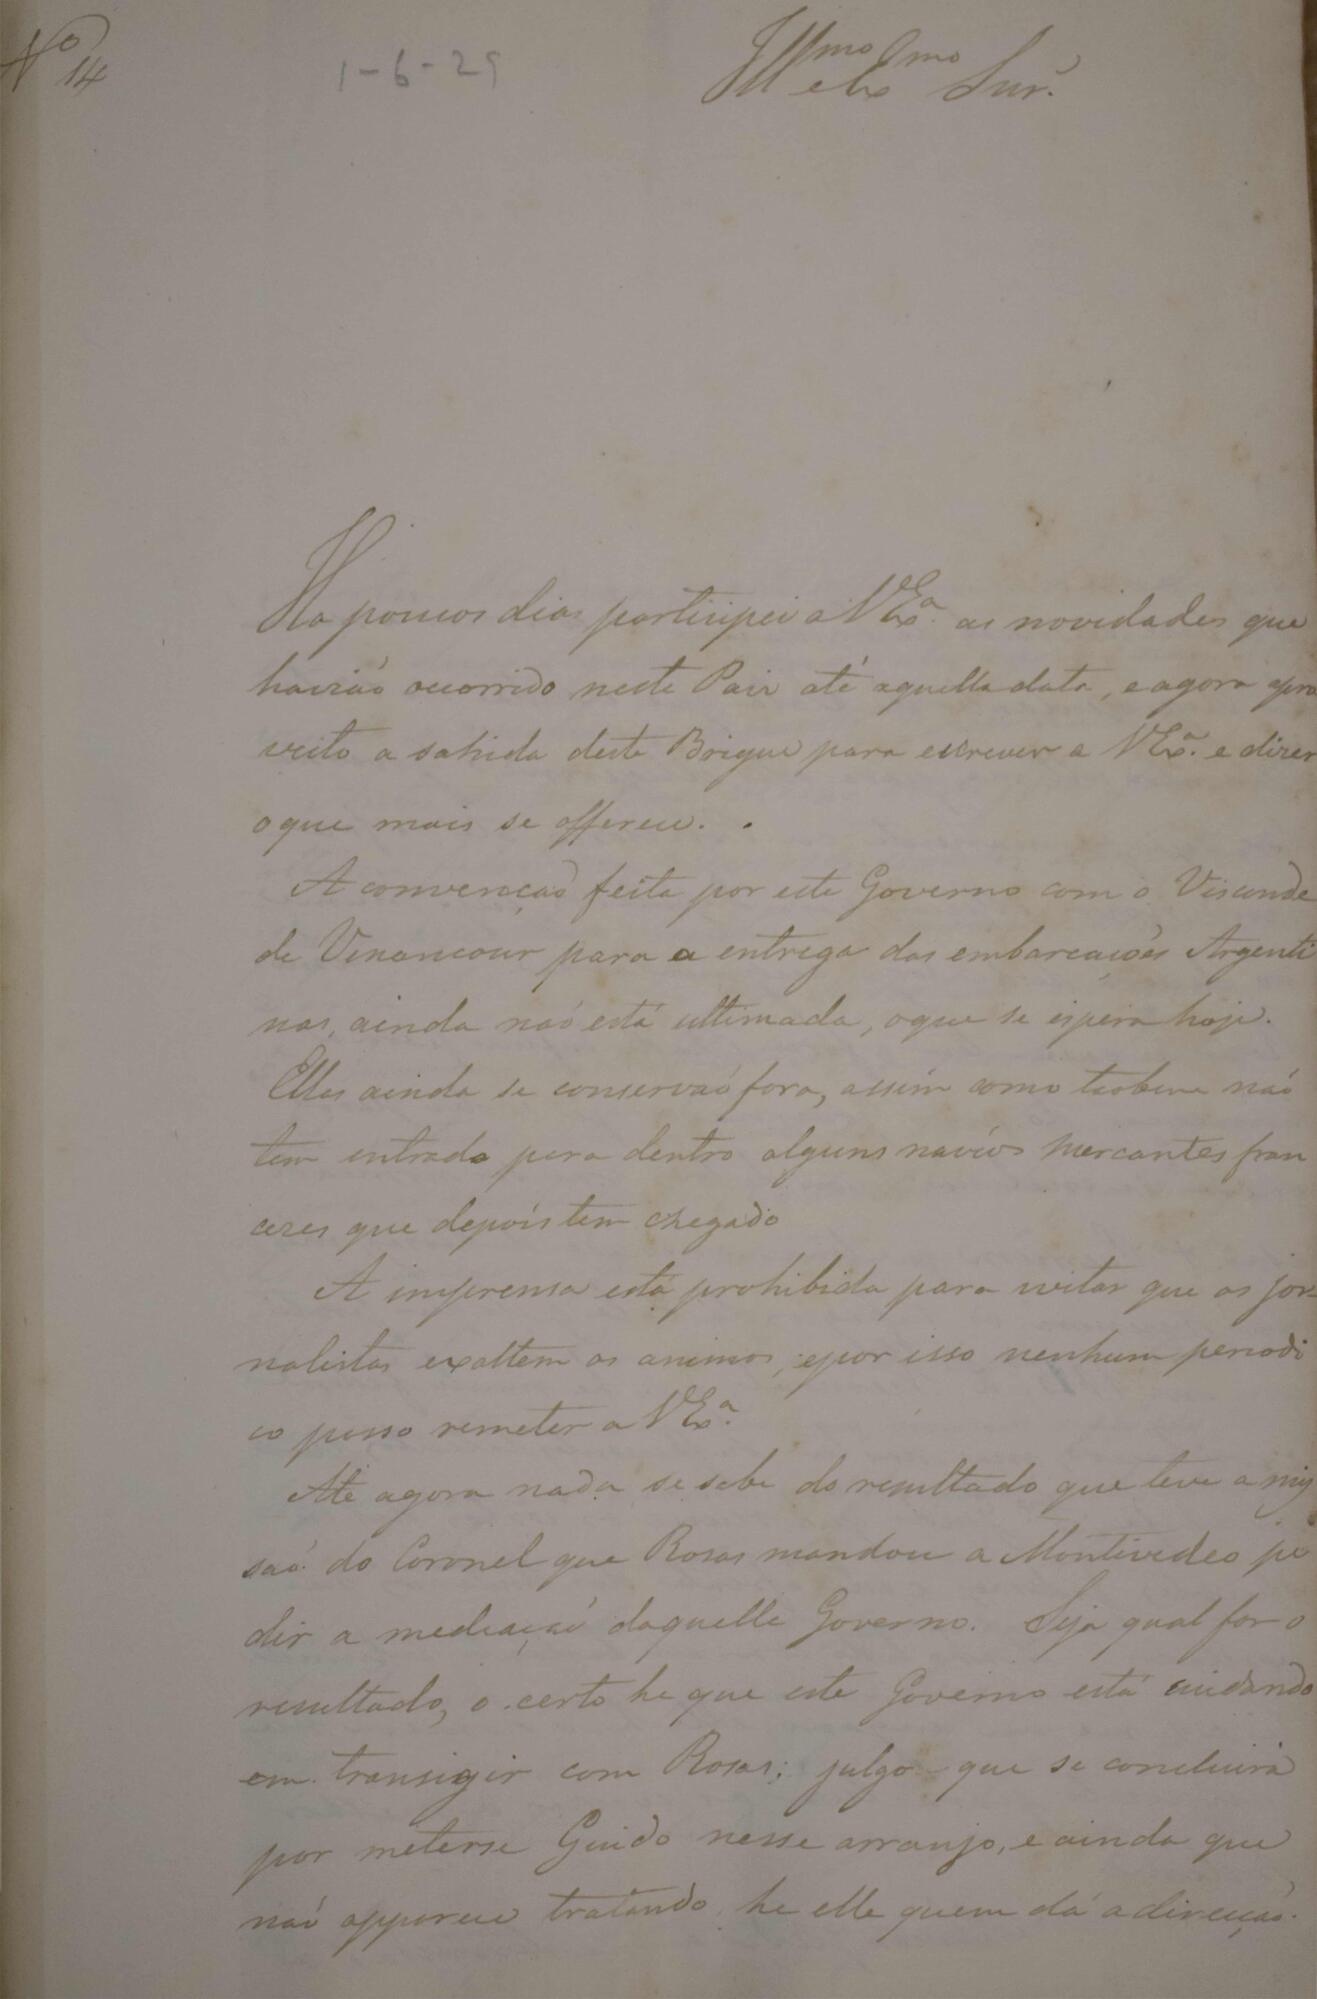 Nº 14
1-6-29
Illmo e Exmo Snr.
Ha poucos dias participei a V Exª. as novidades que
havião occorrido neste Paiz até aquella data, e agora apro
veito a sahida deste Brigue para escrever a V Exª. e dizer
o que mais se offerece.
A convenção feita por este Governo com o Visconde
de Venancour para a entrega das embarcações Argenti
nas, ainda não está ultimada, o que se espera hoje.
Ellas ainda se conservão fora, assim como tãobem não
tem entrado para dentro alguns navios mercantes fran
cezes que depois tem chegado
A imprensa está prohibida para evitar que os jor-
nalistas exaltem os animos, e por isso nenhum periodi
co posso remeter a V Exª.
Até agora nada se sabe do resultado que teve a mis
são do Coronel que Rosas mandou a Montevedeo pe
dir a mediação daquelle Governo. Seja qual for o
resultado, o certo he que este Governo está cuidando
em transigir com Rosas; julgo que se concluirá
por meterse Guido nesse arranjo, e ainda que
não apparece tratando, he elle quem dá a direcção.